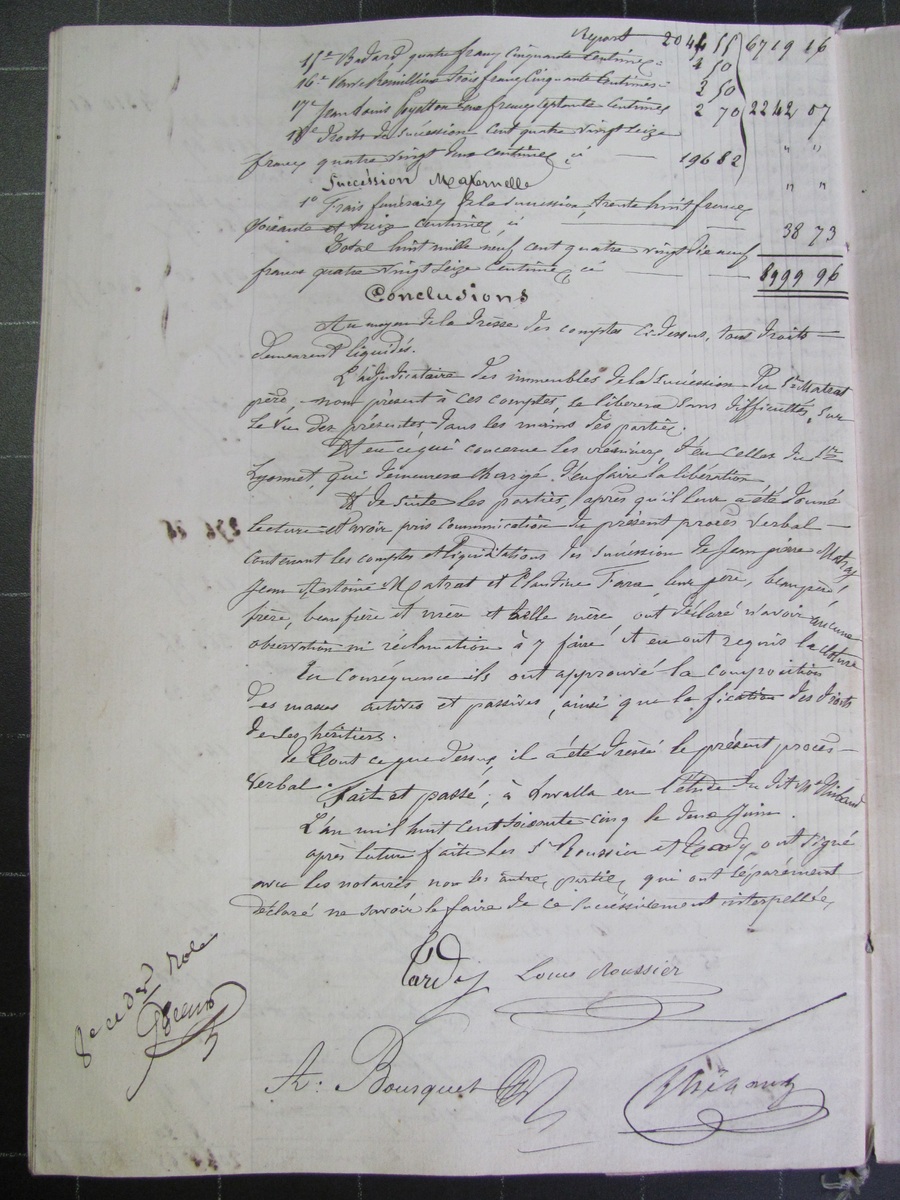 Report 2044 55 6719 16
15° Bedard quatre francs cinquante centimes 4 50
16° trois francs cinquante centimes 3 50
17° Jean Louis deux francs septante centimes 2 70 2242 07
18° Droits de succession cent quatre vingt seize
francs quatre vingt deux centimes ci 196 82 " "
Succession Maternelle " "
1° Frais funéraires de la succession, trente huit francs
soixante et treize centimes, ci 38 73
Total huit mille neuf cent quatre vingt dix neuf
francs quatre vingt seize centimes ci 8999 96
Conclusions
Au moyen de la dresse des comptes ci dessus, tous droits
demeurent liquidés.
L'adjudicataire des immeubles de la succession du Sr Matrat
père non présent à ces comptes, se libèrera sans difficultés, sur
le vu des présentes, dans les mains des parties.
Et en ce qui concerne les créanciers, d'en celles du Sr
qui demeurera chargé d'en faire la libération.
Et de suite les parties, après qu'il leur a été donné
lecture et avoir pris communication du présent procès verbal
contenant les comptes et liquidations des succession de Jean pierre Matrat
Jean Antoine Matrat et Claudine Fara leur père, beau père,
frère, beau frère et mère et belle mère ont déclaré n'avoir aucune
observation ni réclamation à y faire et en ont requis la cloture
En conséquence ils ont approuvé la composition
des masses actives et passives, ainsi que la fication des droits
de les héritiers.
De tout ce que dessus, il a été dressé le présent procès
verbal.
Fait et passé, à en l'étude du dit Me
L'an mil huit cent soixante cinq le deux Juin.
après lecture faite les Sr Roussier et Tardy ont signé
avec les notaires non les autres parties qui ont séparément
déclaré ne savoir le faire de ce successivement interpellées
Tardy Louis Roussier
role
A. Bousquet